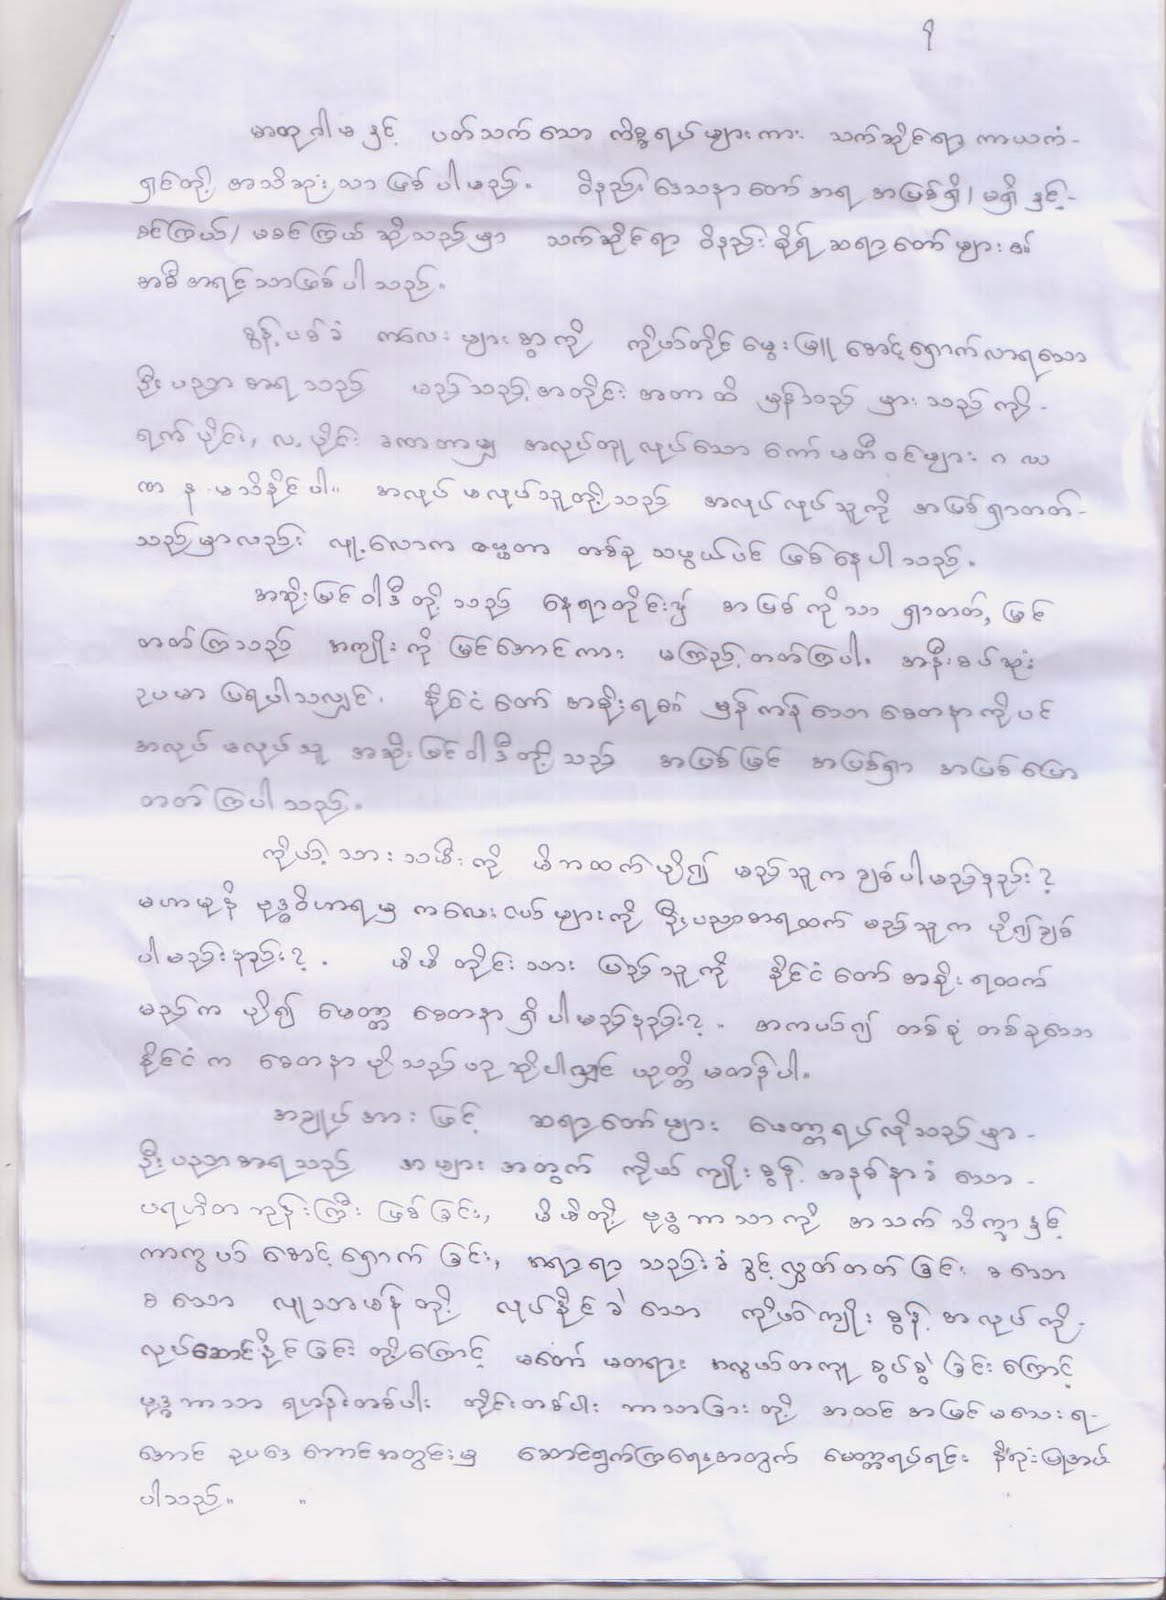 ၅
မာတုဂါမနှင့် ပတ်သက်သော ကိစ္စရပ်များကား သက်ဆိုင်ရာ ကာယကံ-
ရှင်တို့ အသိဆုံးသာ ဖြစ်ပါမည်။ ဝိနည်း ဒေသနာတော်အရ အပြစ်ရှိ/မရှိ နှင့်-
စင်ကြယ်/မစင်ကြယ် ဆိုသည်မှာ သက်ဆိုင်ရာ ဝိနည်းဓိုရ် ဆရာတော်များ၏
အစီအရင်သာဖြစ်ပါသည်။
စွန့်ပစ်ခံ ကလေးများစွာကို ကိုယ်တိုင်မွေးမြူ စောင့်ရှောက်လာရသော
ဦးပညာစာရသည် မည်သည့်အတိုင်းအတာထိ မှန်သည် မှားသည်ကို-
ရက်ပိုင်း, လပိုင်း ခဏတာမျှ အလုပ်တုလုပ်သော ကော်မတီဝင်များ ဂ ဃ
ဏ န မသိနိုင်ပါ။ အလုပ်မလုပ်သူတို့သည် အလုပ်လုပ်သူကို အပြစ်ရှာတတ်-
သည်မှာလည်း လူ့လောက ဓမ္မတာ တစ်ခု သဖွယ်ပင် ဖြစ်နေပါသည်။
အဆိုးမြင်ဝါဒီတို့သည် နေရာတိုင်း၌ အပြစ်ကိုသာ ရှာတတ်, မြင်
တတ်ကြသည် အကျိုးကို မြင်အောင်ကား မကြည့်တတ်ကြပါ။ အနီးစပ်ဆုံး
ဥပမာ ပြရပါသလျှင် နိုင်ငံတော်အစိုးရ၏ မှန်ကန်သော စေတနာကိုပင်
အလုပ်မလုပ်သူ အဆိုးမြင်ဝါဒီတို့သည် အပြစ်မြင် အပြစ်ရှာ အပြစ်ပြော
တတ်ကြပါသည်။
ကိုယ့်သားသမီးကို မိဘထက်ပို၍ မည်သူက ချစ်ပါမည်နည်း?
မဟာမုနိ ဗုဒ္ဓဝိဟာရမှ ကလေးငယ်များကို ဦးပညာစာရထက် မည်သူက ပို၍ချစ်
ပါမည်နည်း?။ မိမိတိုင်းသား ပြည်သူကို နိုင်ငံတော်အစိုးရထက်
မည်က ပို၍ မေတ္တာ စေတနာ ရှိပါမည်နည်း?။ အကယ်၍ တစ်စုံတစ်ခုသော
နိုင်ငံက စေတနာပိုသည်ဟု ဆိုပါလျှင် ယုတ္တိမတန်ပါ။
အချုပ်အားဖြင့် ဆရာတော်များ မေတ္တာရပ်လိုသည်မှာ-
ဦးပညာစာရသည် အများအတွက် ကိုယ်ကျိုးစွန့် အနစ်နာခံသော-
ပရဟိတဘုန်းကြီး ဖြစ်ခြင်း, မိမိတို့ ဗုဒ္ဓဘာသာကို အသက် သိက္ခာနှင့်
ကာကွယ် စောင့်ရှောက်ခြင်း, ရာရာ သည်းခံ ခွင့်လွှတ်တတ်ခြင်း စသော
စသော လူသာမန်တို့ လုပ်နိုင်ခဲသော ကိုယ်ကျိုးစွန့် အလုပ်ကို-
လုပ်ဆောင်နိုင်ခြင်းတို့ကြောင့် မတော်မတရား အလွယ်တကူ စွပ်စွဲခြင်းကြောင့်
ဗုဒ္ဓဘာသာ ရဟန်းတစ်ပါး တိုင်းတစ်ပါး ဘာသာခြားတို့ အထင်အမြင်မသေးရ-
အောင် ဥပဒေဘောင်အတွင်းမှ ဆောင်ရွက်ကြရေးအတွက် မေတ္တာရပ်ရင်း နိဂုံးပြုအပ်
ပါသည်။ ။